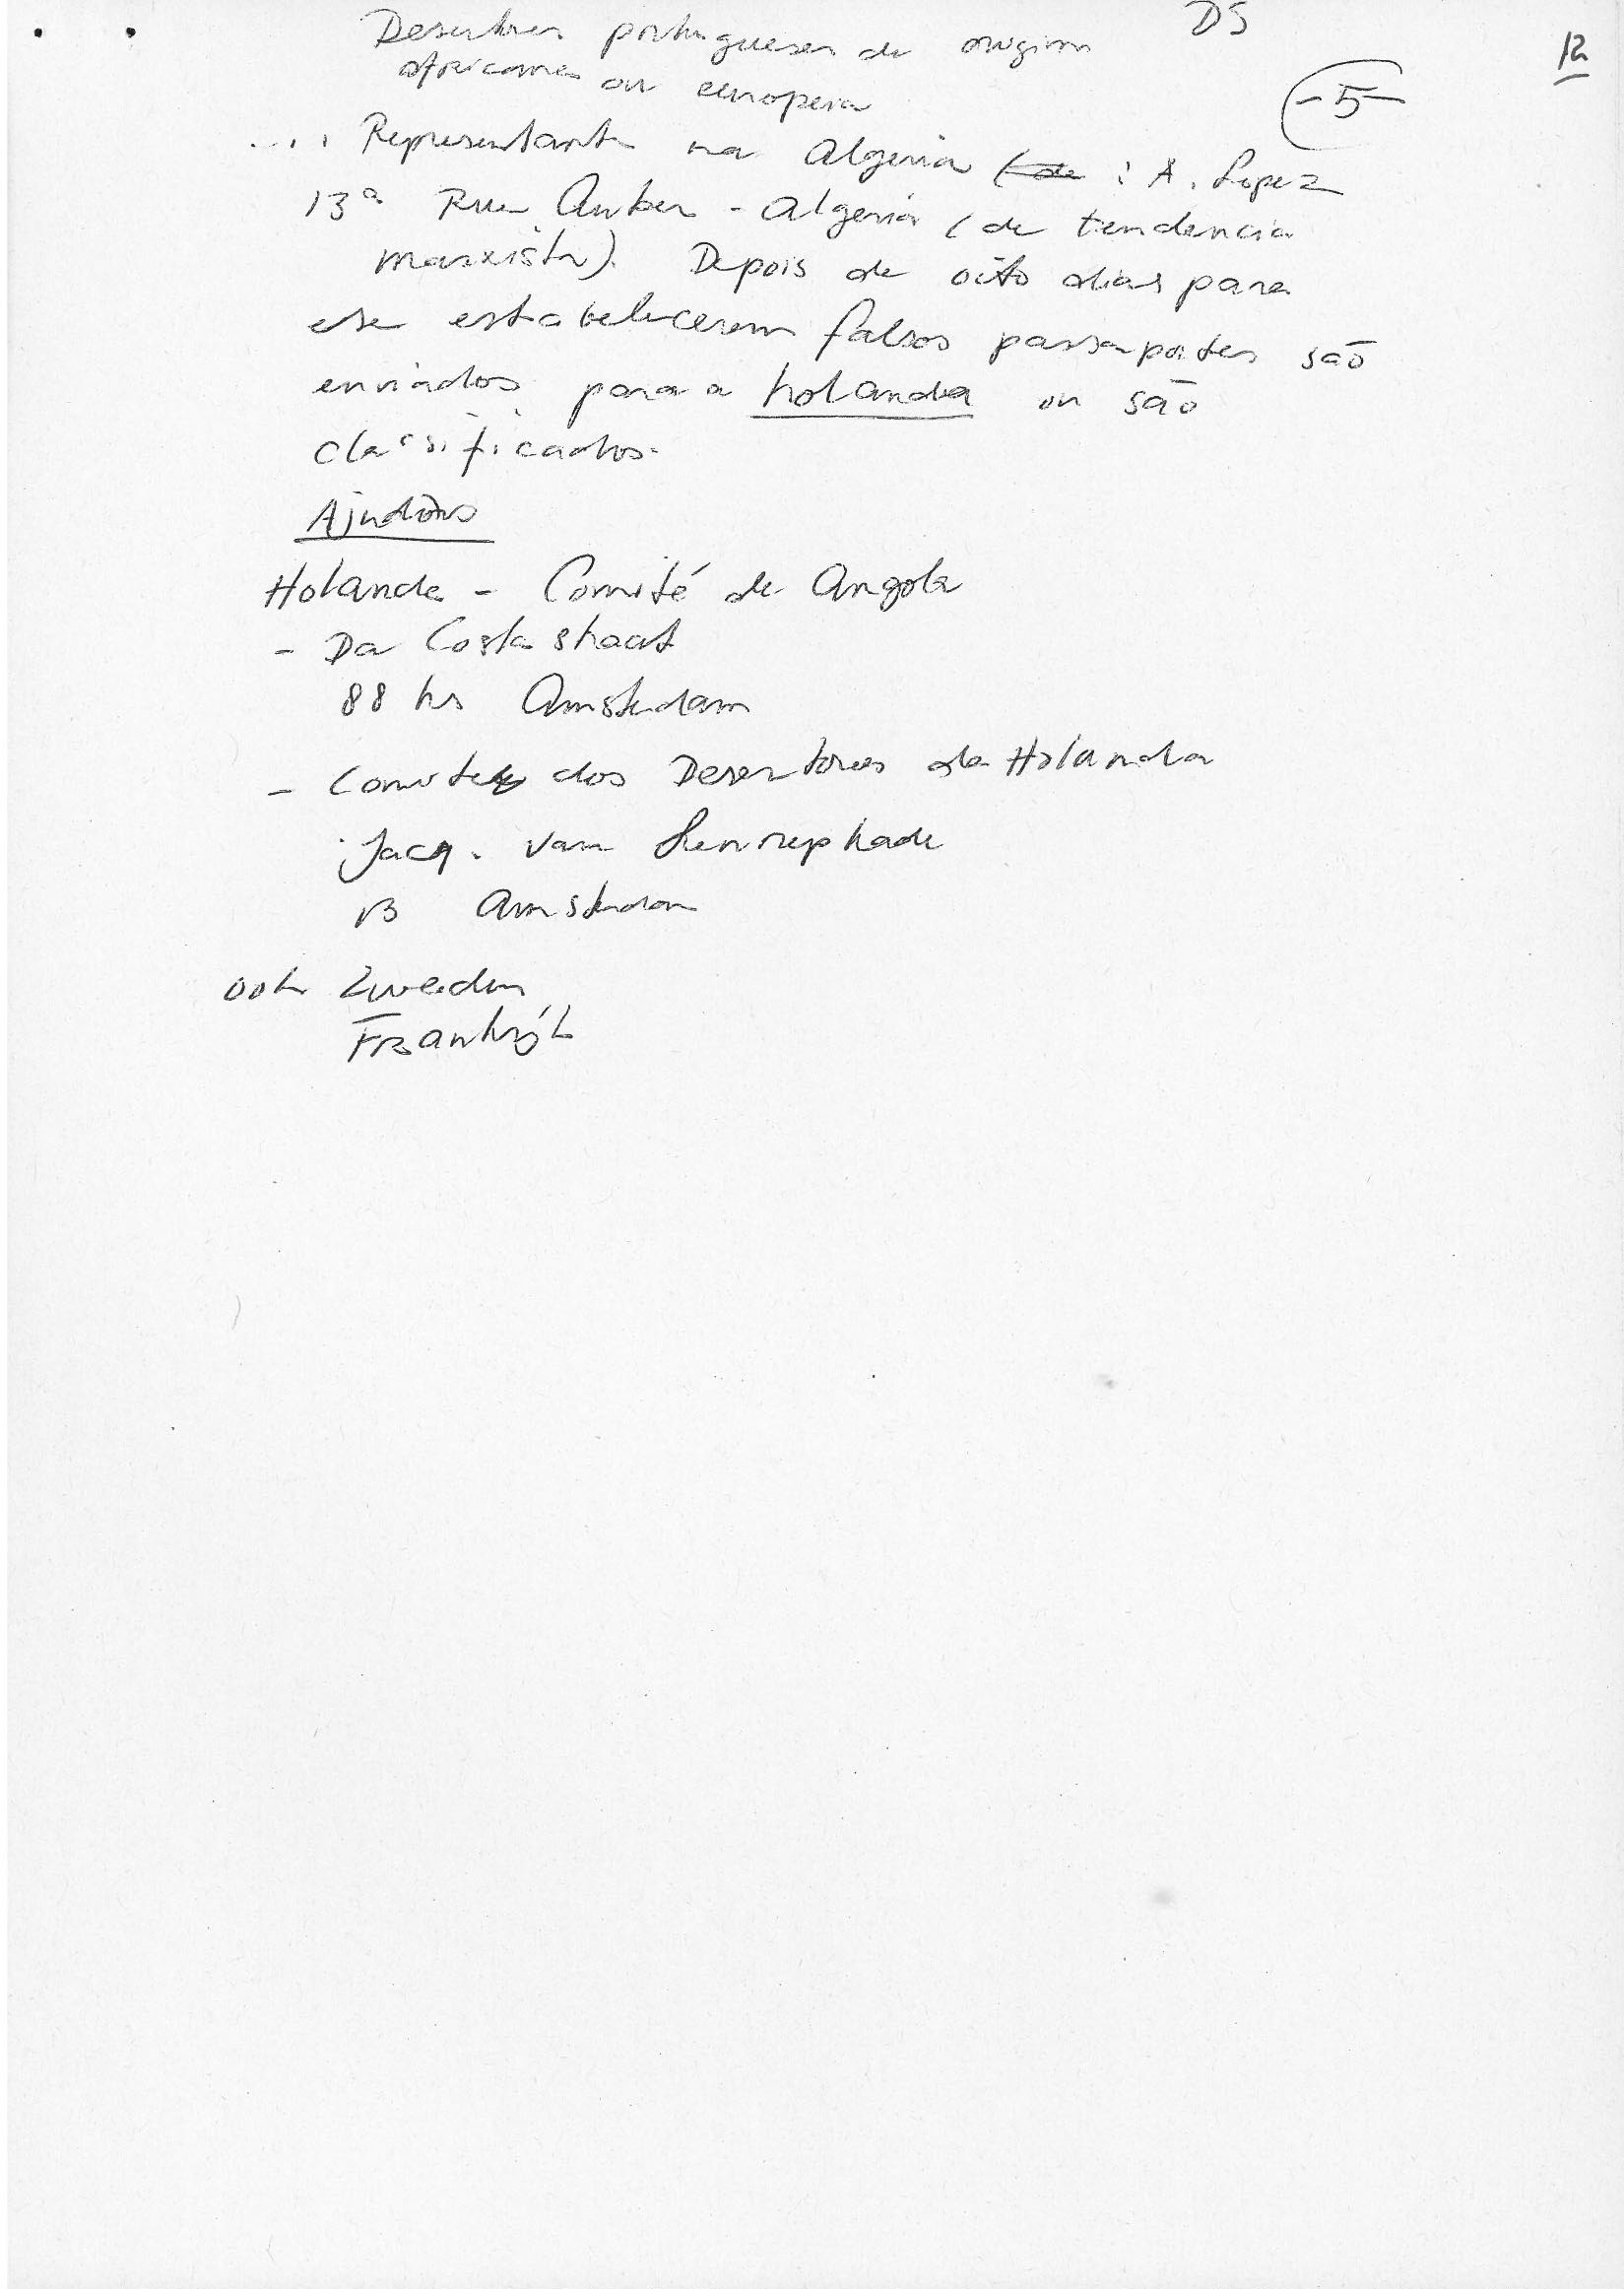 DS
12
Desertores portugueses de origem
africana ou europeia
-5-
.... Representante na Algeria : A. Lopez
13a Rue Auber - Algeria (de tendencia
marxista). Depois de oito dias para
se estabelecerem falsos passaportes são
enviados para a holanda ou são
classificados.
Holanda - Comité de Angola
- Da Costa straat
88 hs Amsterdam
- Comite dos Desertores da Holanda
Jacq. van Lennepkade
Amsterdam
ook Zweden
Frankrijk